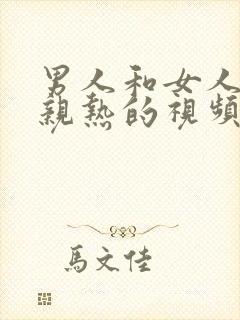 男人和女人
親熱的視頻
馬文佳